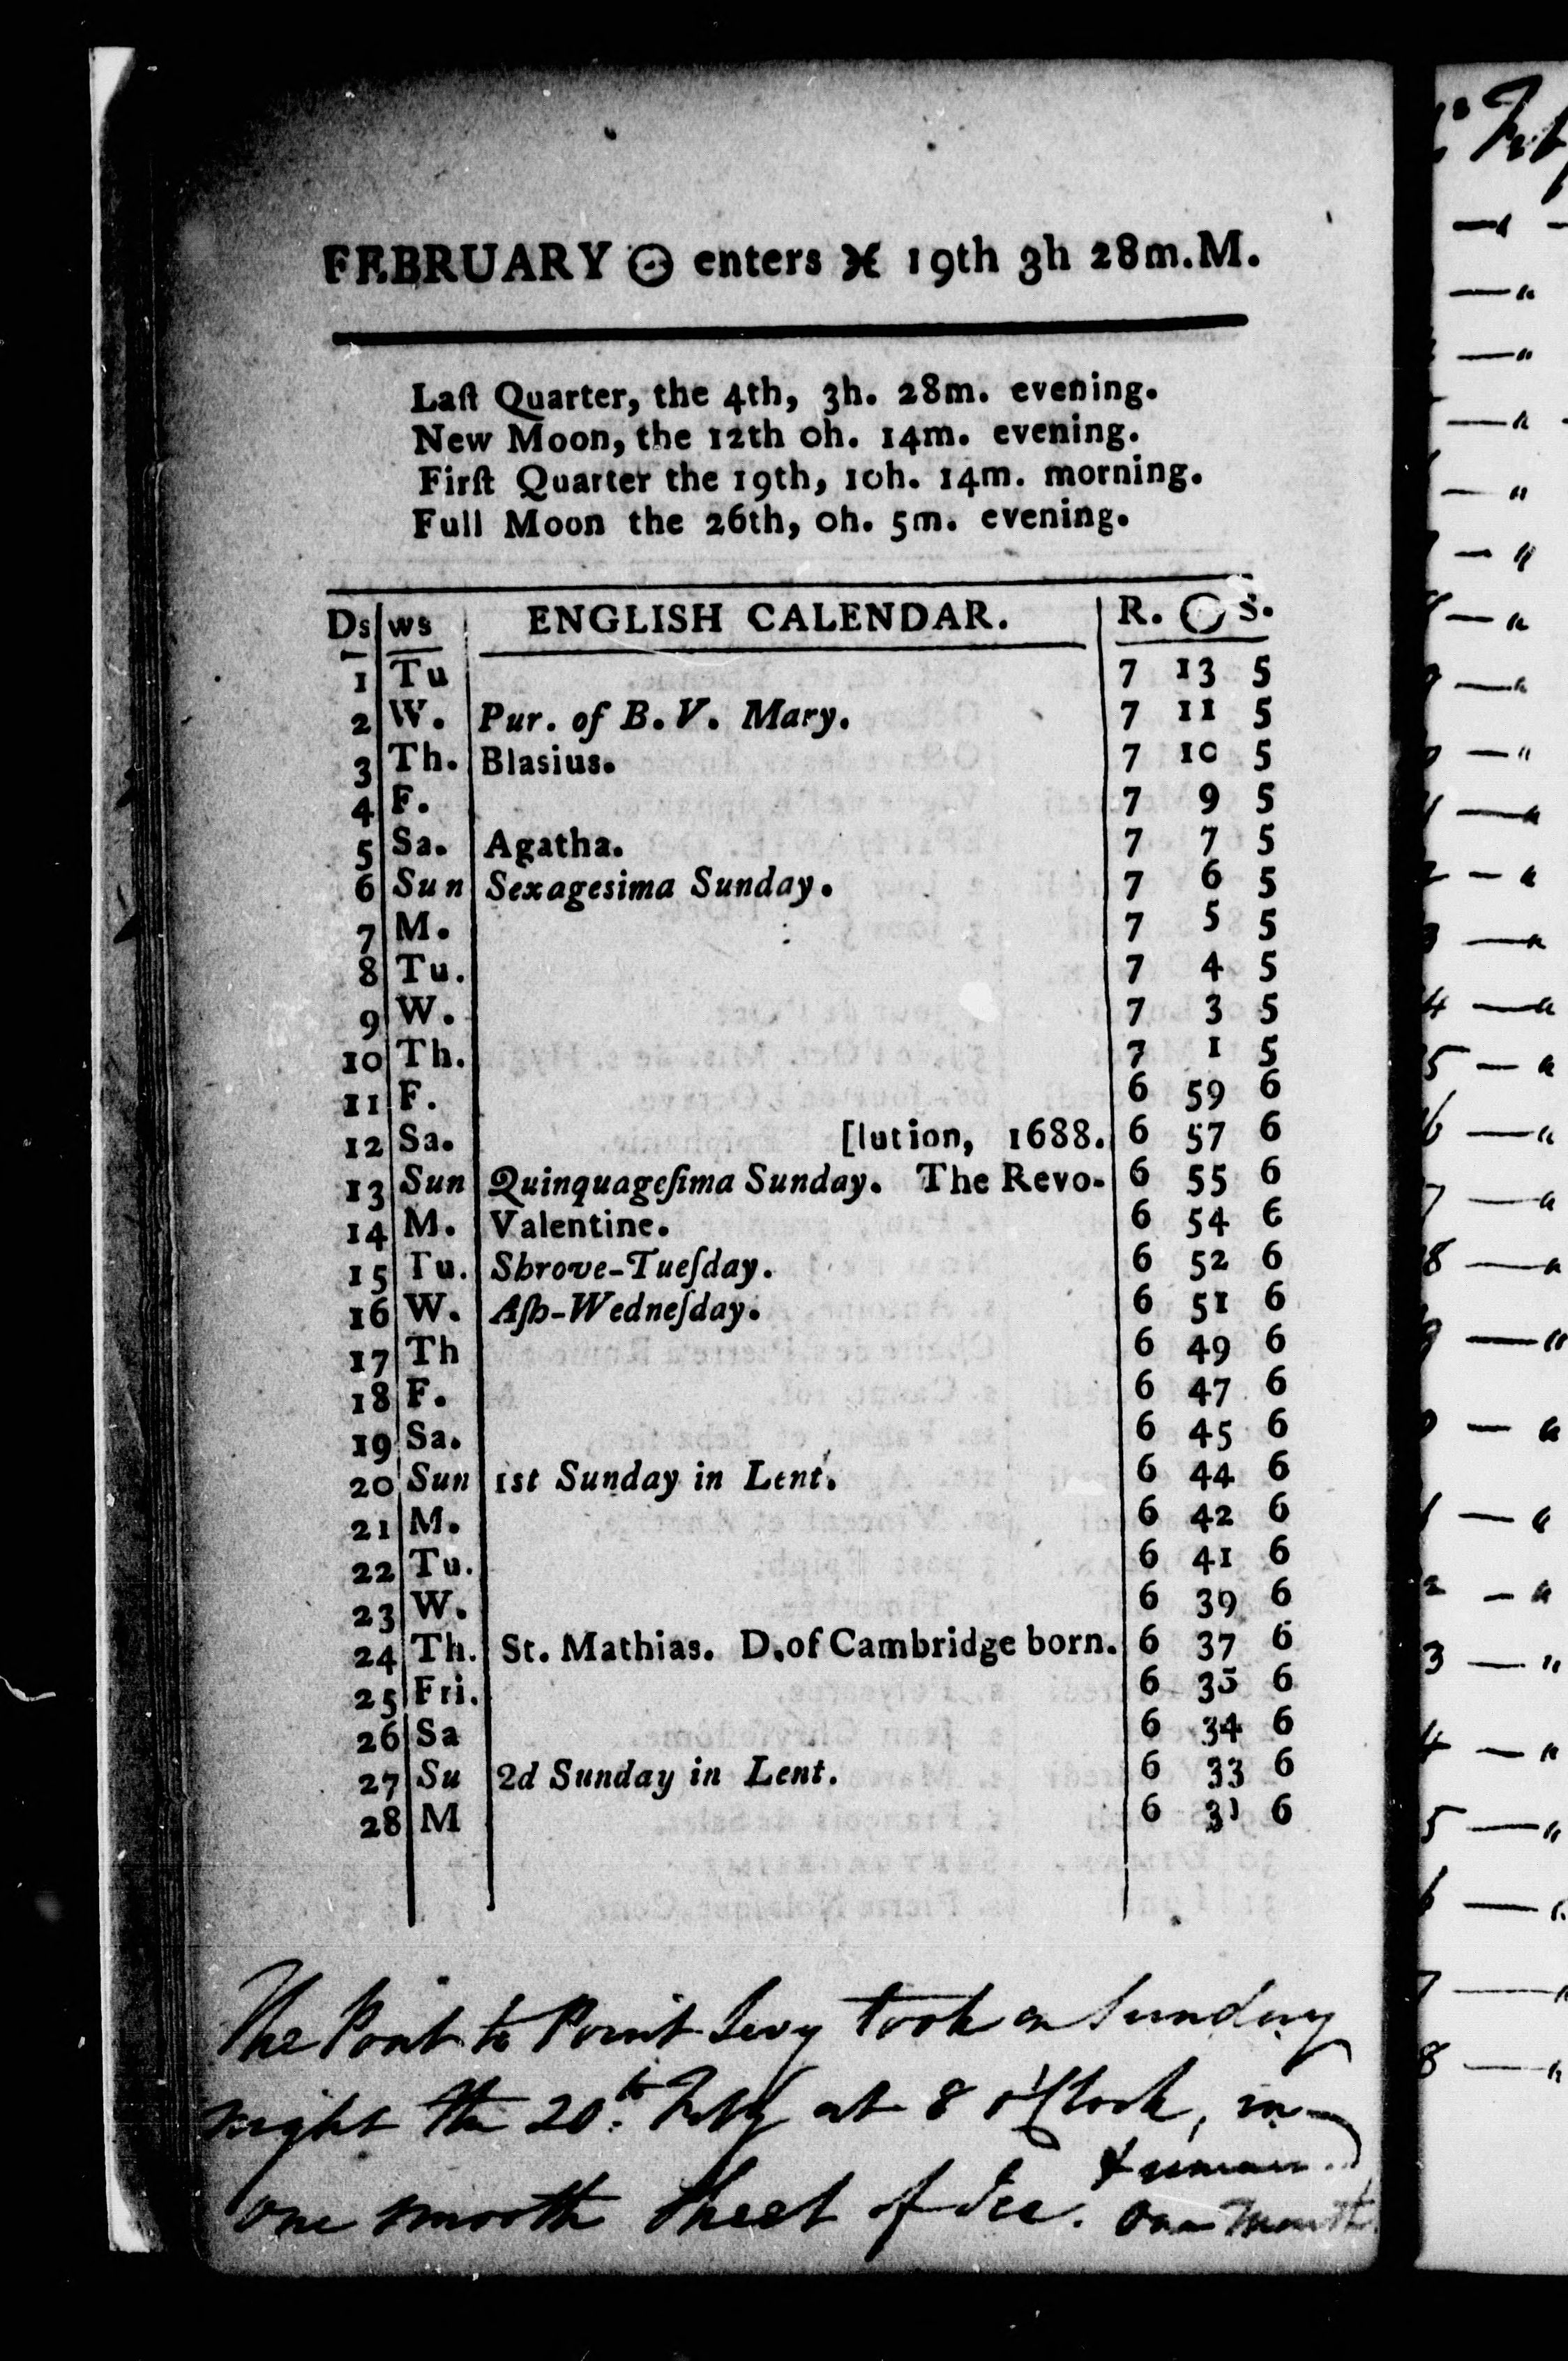 FEBRUARY ☉ enters ♓ 19th 3h 28m.M.
Laſt Quarter, the 4th, 3h. 28m. evening.
New Moon, the 12th 0h. 14m. evening.
Firſt Quarter the 19th, 10h. 14m. morning.
Full Moon the 26th, 0h. 5m. evening.
Ds ws ENGLISH CALENDAR. R. ☉ S.
1 Tu 7 13 5
2 W. Pur. of B. V. Mary. 7 11 5
3 Th. Blasius. 7 10 5
4 F. 7 9 5
5 Sa. Agatha. 7 7 5
6 Sun Sexagesima Sunday. 7 6 5
7 M. 7 5 5
8 Tu. 7 4 5
9 W. 7 3 5
10 Th. 7 1 5
11 F. 6 59 6
12 Sa. [lution, 1688. 6 57 6
13 Sun Quinquageſima Sunday. The Revo- 6 55 6
14 M. Valentine. 6 54 6
15 Tu. Shrove-Tueſday. 6 52 6
16 W. Aſh-Wedneſday. 6 51 6
17 Th 6 49 6
18 F. 6 47 6
19 Sa. 6 45 6
20 Sun 1st Sunday in Lent. 6 44 6
21 M. 6 42 6
22 Tu. 6 41 6
23 W. 6 39 6
24 Th. St. Mathias. D. of Cambridge born. 6 37 6
25 Fri. 6 35 6
26 Sa 6 34 6
27 Su 2d Sunday in Lent. 6 33 6
28 M 6 31 6
The Pont to Point Levy took on Sunday
night the 20th Feby at 8 o'Clock, in
one smooth Sheet of Ice. &
One Month